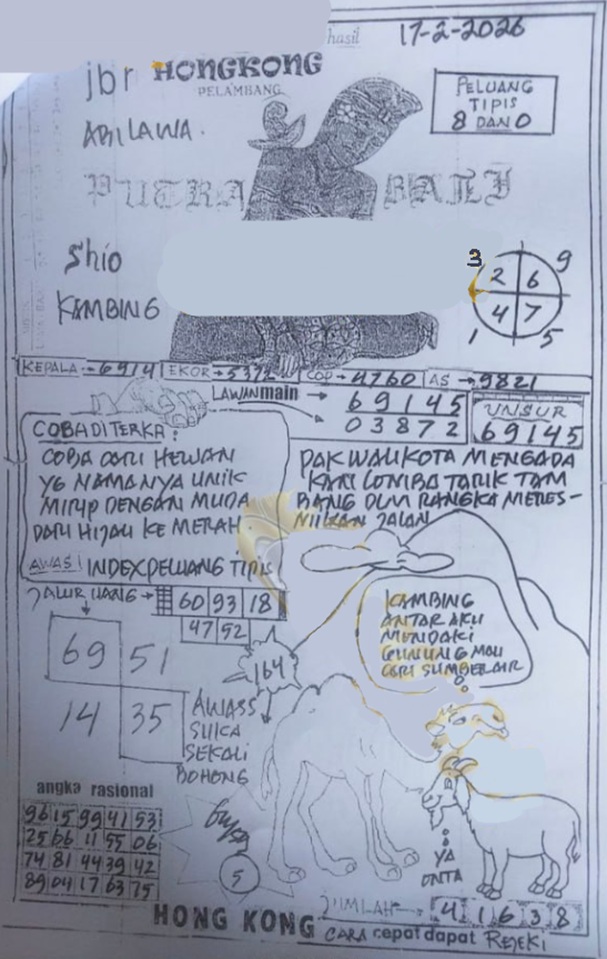 hasil
17-2-2026
jbr HONGKONG
PELAMBANG
PELUANG
TIPIS
8 DAN 0
ABILAWA.
PUTRA BALI
Shio
KAMBING
3
9
2 6
4 7
1
5
KEPALA 6914 EKOR 5372 COP 4760 AS 9821
LAWAN main
69145
03872
UNSUR
69145
COBA DITERKA:
COBA CARI HEWAN
YG NAMANYA UNIK
MIRIP DENGAN MUDA
DARI HIJAU KE MERAH.
PAK WALIKOTA MENGADA
KAN LOMBA TARIK TAM
BANG DLM RANGKA MERES-
MIKAN JALAN
AWAS! INDEX PELUANG TIPIS
JALUR UANG 60 93 18
47 52
69 51
14 35
164
KAMBING
ANTAR AKU
MENDAKI
GUNUNG MAU
CARI SUMBER AIR
AWASS
SUKA
SEKALI
BOHONG
angka rasional
96 15 99 41 53
25 66 11 55 06
74 81 44 39 42
89 04 17 63 75
5
YA
ONTA
JUMLAH 4 1 6 3 8
HONG KONG CARA cepat dapat REJEKI